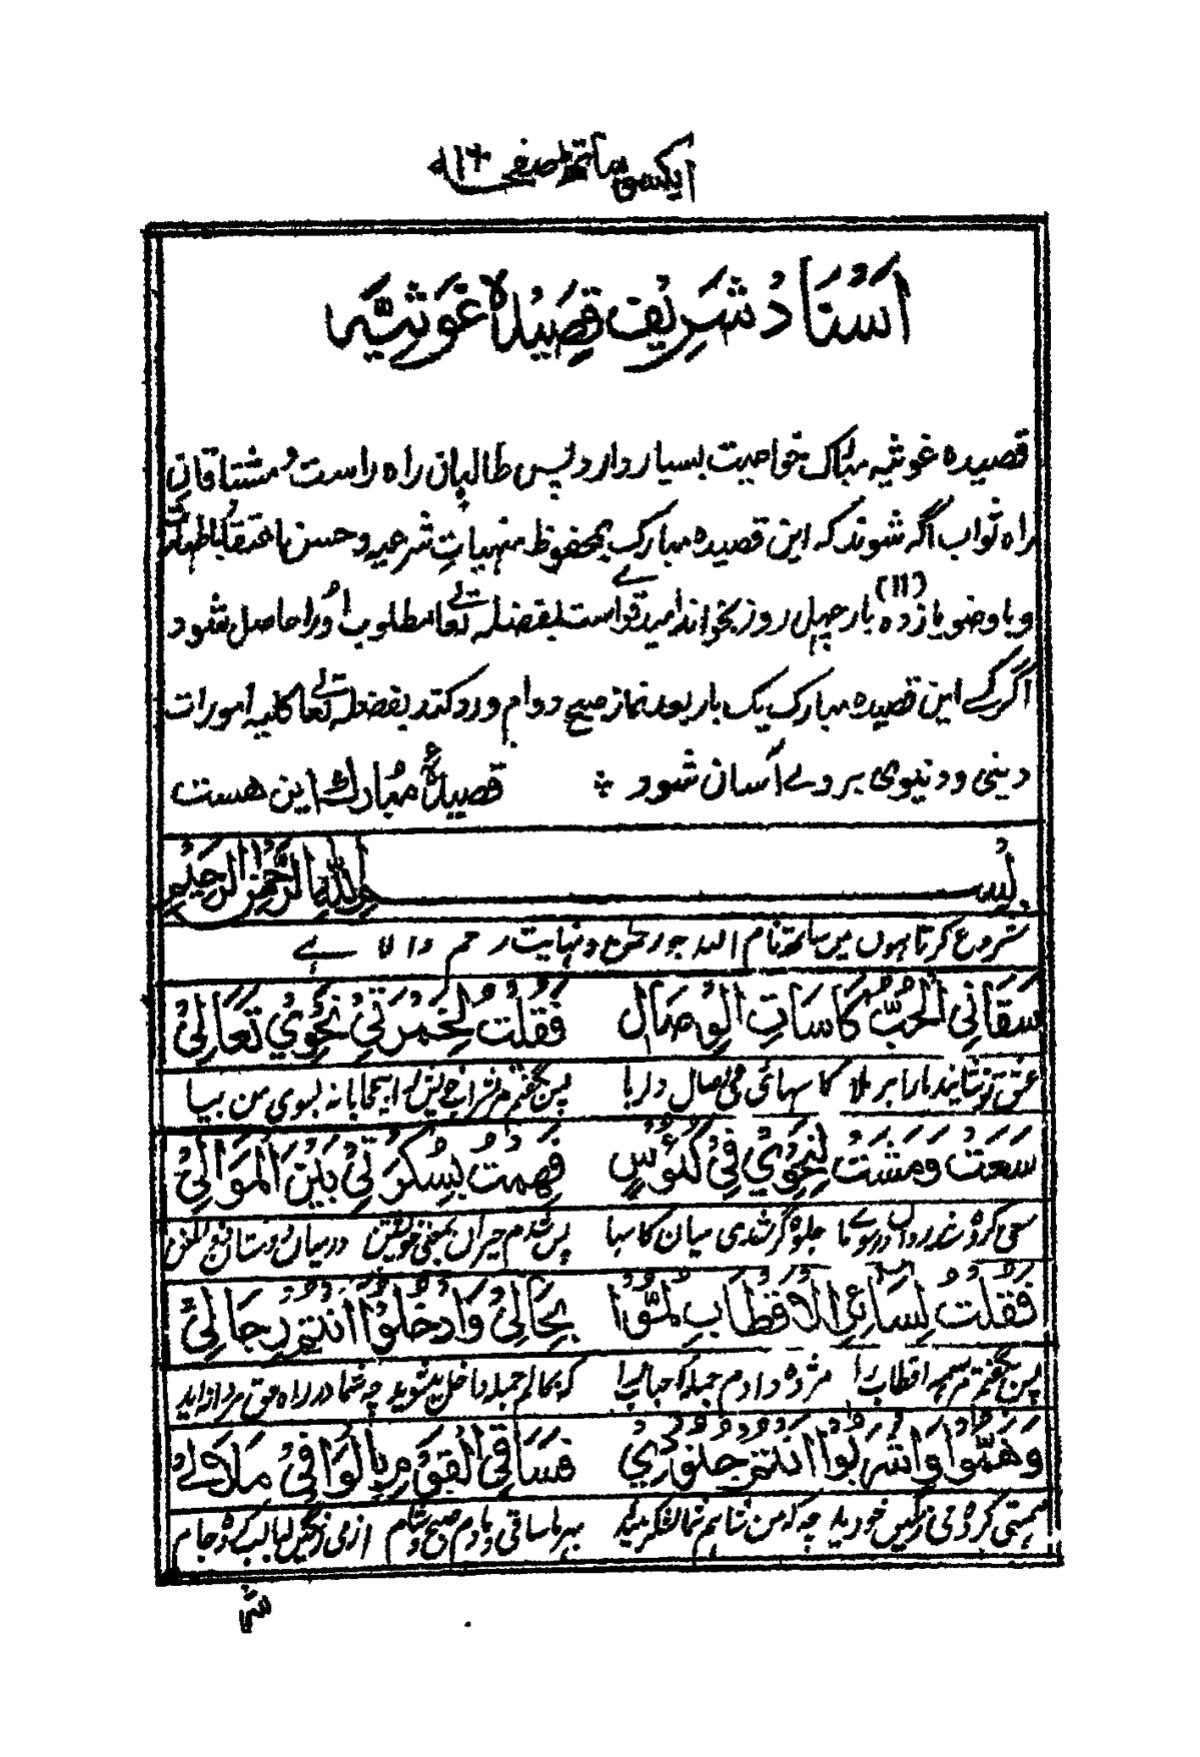 ایکسو ساتھ صفحہ ۱۶۰
اَسْنَادُ شَرِيْف قَصِيْدَهْ غَوْثِيَّه
قصیدہ غوثیہ مبارک خواصیت بسیار دارد پس طالبان راہ راست و مشتاقان
راہ ثواب آگہ شوند کہ این قصیدہ مبارک بمحفوظ منہیاتِ شرعیہ و حسن اعتقاد باطہارت
و باوضو یازدہ (۱۱) بار چہل روز بخواند امید قوی است بفضلہ تعالےٰ مطلوب اُورا حاصل شود
اگر کسے این قصیدہ مبارک یک بار بعد نماز صبح دوام ورد کند بفضلہ تعالےٰ کلیہ امورات
دینی و دنیوی بر وے آسان شود ؞ قصیدۂ مُبارک این هست
بِسْمِ اللهِ الرَّحْمٰنِ الرَّحِيْمِ
شروع کرتا ہوں میں ساتھ نام اللہ جو رحمٰن و نہایت رحم والا ہے
سَقَانِي الْحُبُّ كَاسَاتِ الْوِصَالِ فَقُلْتُ لِخَمْرَتِيْ نَحْوِيْ تَعَالِيْ
عشق مارا بر ملا کاسہائی می وصال دلربا پس بگفتم بسوی من بیا
سَعَتْ وَمَشَتْ لِنَحْوِيْ فِيْ كُئُوْسٍ فَهِمْتُ بِسُكْرَتِيْ بَيْنَ الْمَوَالِيْ
سعی کرد و شد روان در سوئے ما جلوہ گر شد می میان کاسہا پس شدم حیران خویشتن درمیان دوستان
فَقُلْتُ لِسَائِرِ الْاَقْطَابِ لُمُّوْا بِحَالِيْ وَادْخُلُوْا اَنْتُمْ رِجَالِيْ
پس بگفتم ہمہ اقطاب را مژدہ دادم جملہ احباب را کہ بحالم جملہ داخل شوید چہ شما در راہ حق مردانہ اید
وَهُمُّوْا وَاشْرَبُوْا اَنْتُمْ جُنُوْدِيْ فَسَاقِي الْقَوْمِ بِالْوَافِيْ مَلَالِيْ
ہمتی کردہ می رنگین خورید چہ کہ من شاہم شما لشکر بہر ما ساقی دمادم صبح و شام از می رنگین لبالب کردہ جام
شما